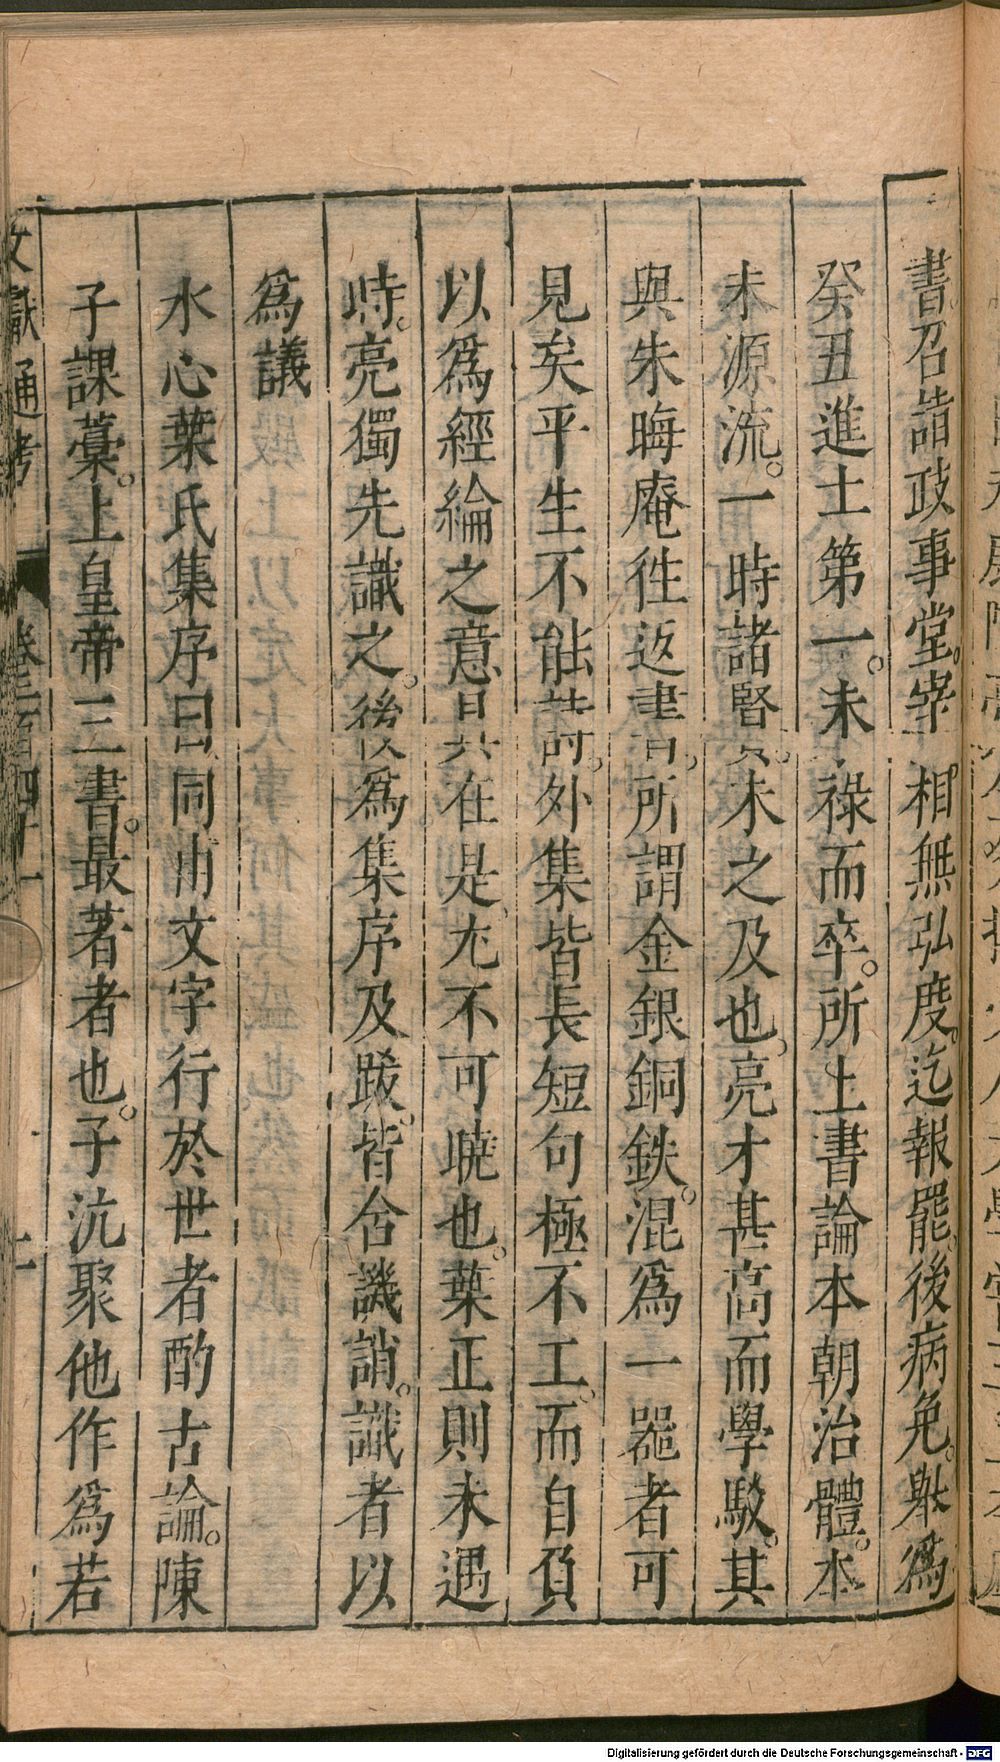 書召詣政事堂宰相無弘度迄報罷後病免舉為
癸丑進士第一未祿而卒所上書論本朝治體本
末源流一時諸賢未之及也亮才甚高而學駁其
與朱晦庵徃返書所謂金銀銅鉄混為一器者可
見矣平生不能詩外集皆長短句極不工而自負
以為經綸之意具在是尤不可曉也葉正則未遇
時亮獨先識之後為集序及跋皆含譏誚識者以
為議
水心葉氏集序曰同甫文字行於世者酌古論陳
子課藁上皇帝三書最著者也子沆聚他作為若
文獻通考 卷二百四十一 十一
Digitalisierung gefördert durch die Deutsche Forschungsgemeinschaft - DFG